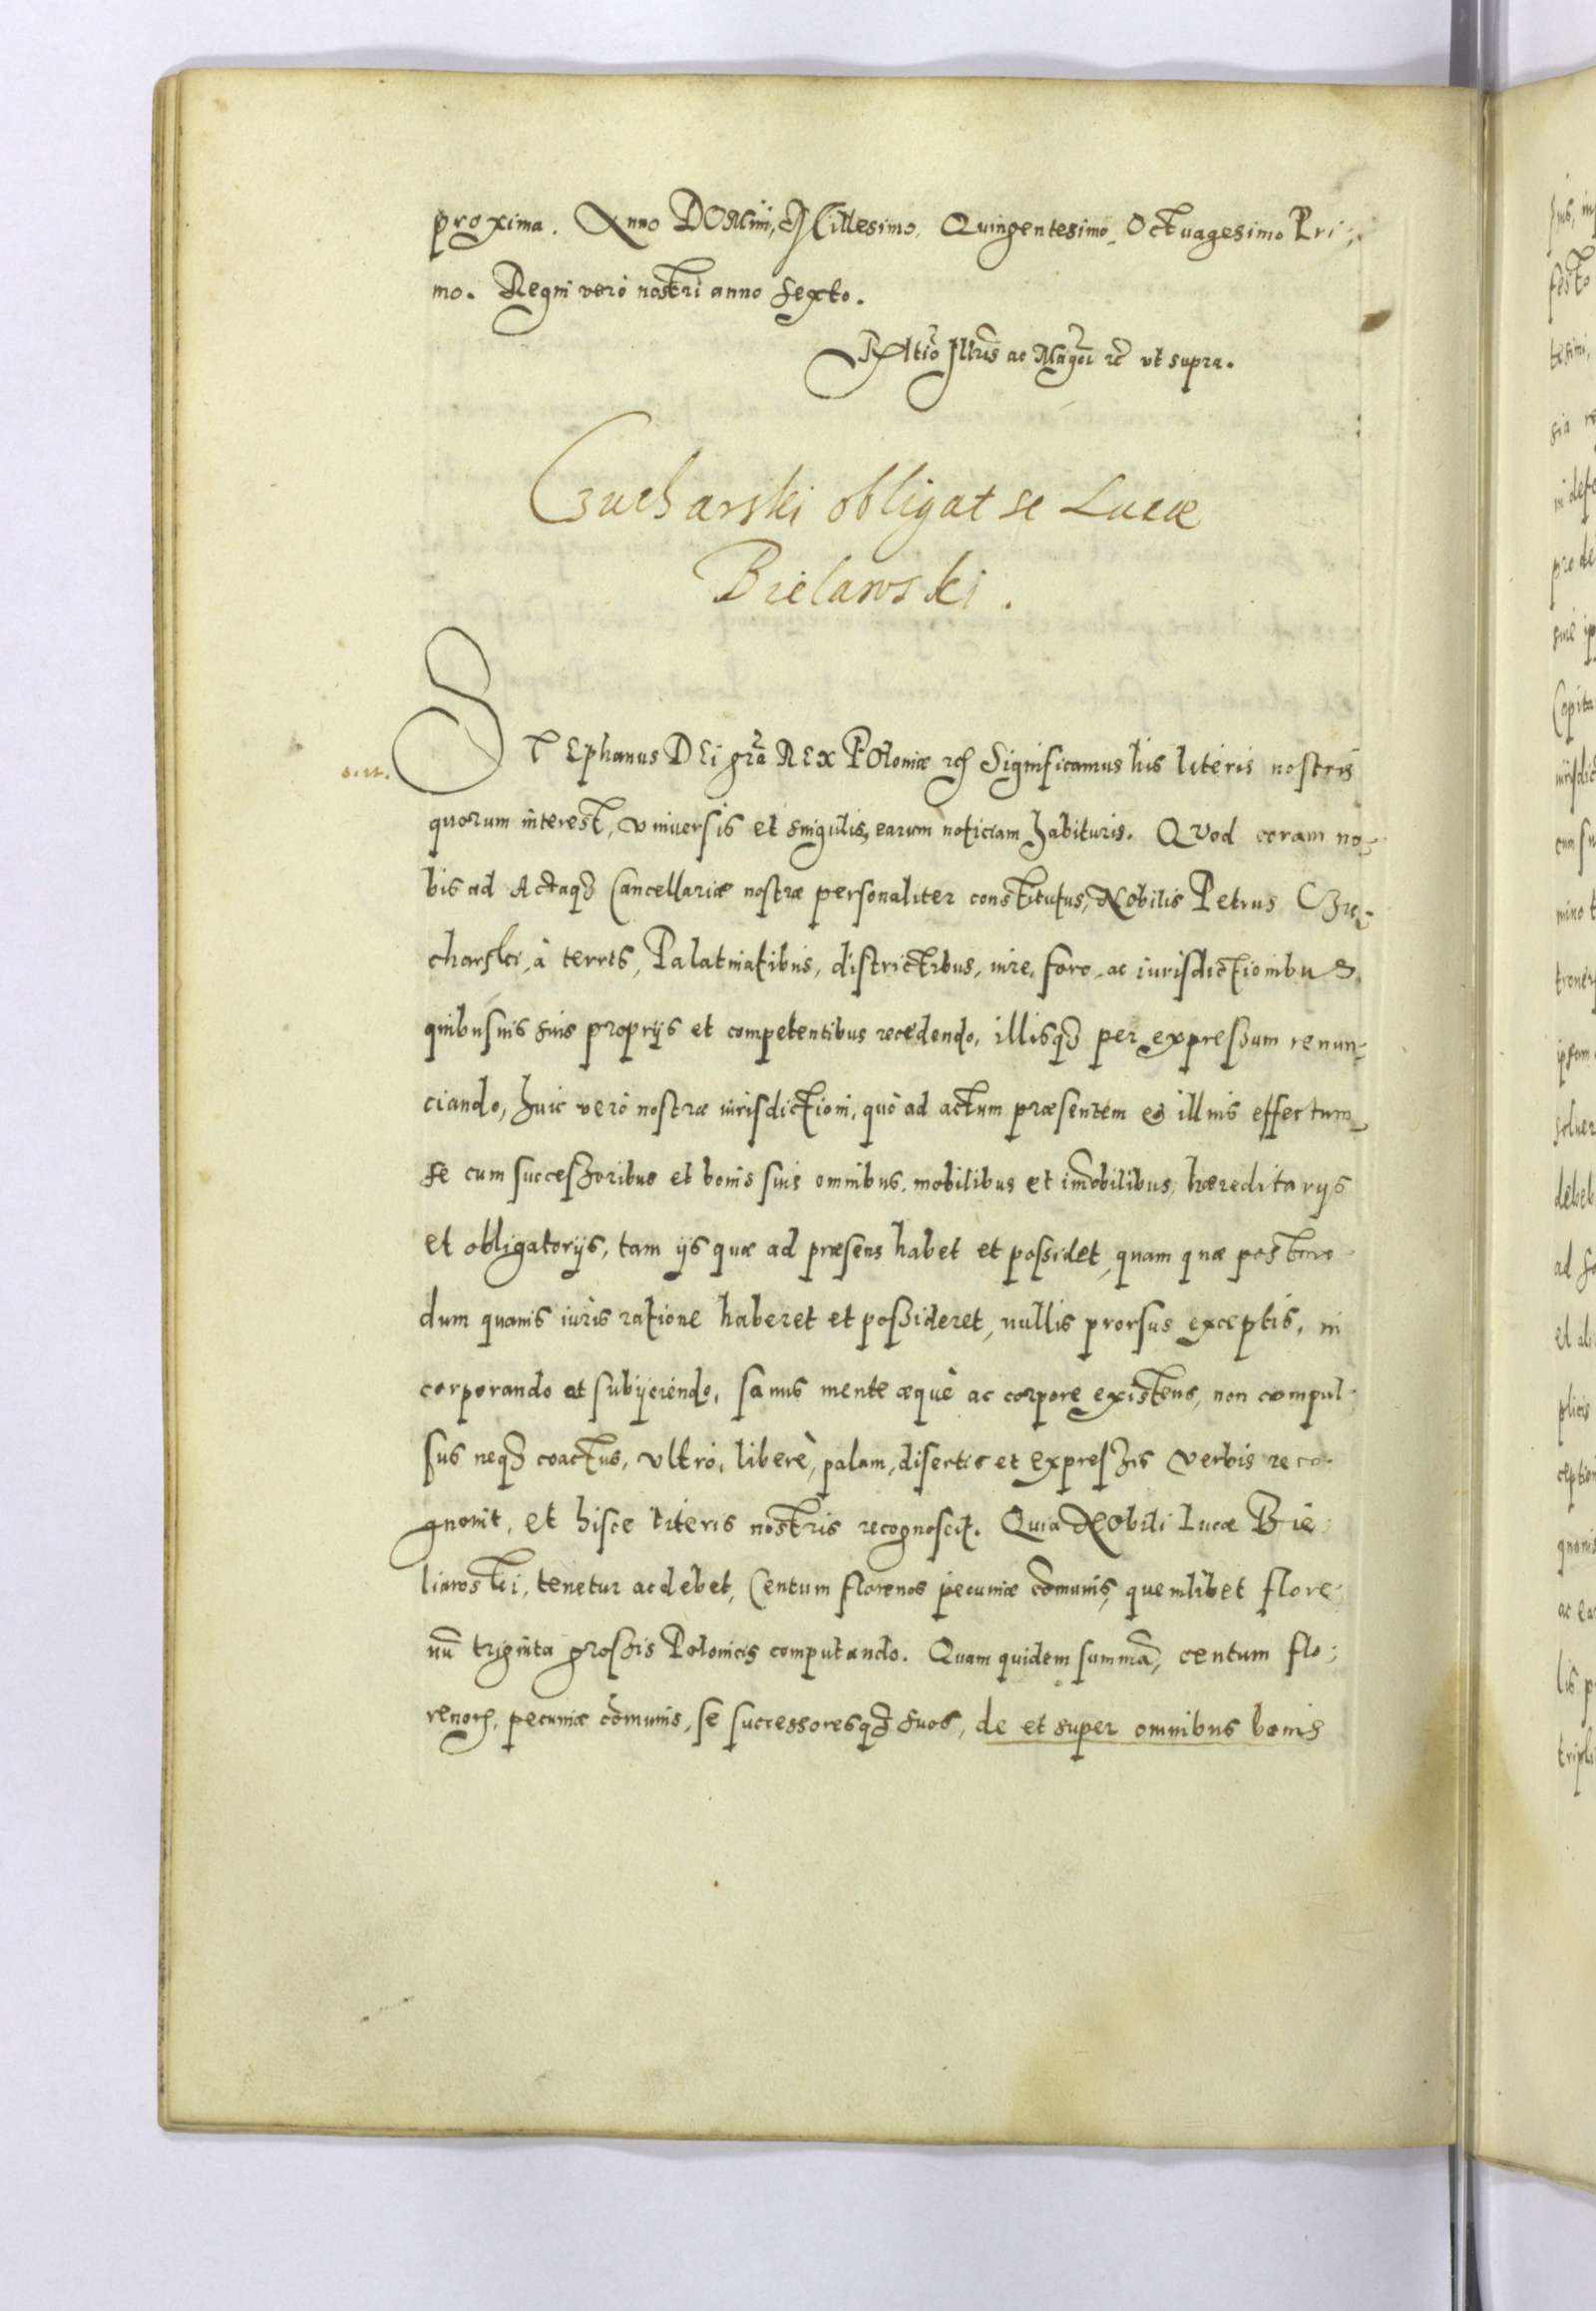 proxima. Anno DOMini, Millesimo, Quingentesimo, Octuagesimo Pri-
mo. Regni vero nostri anno sexto.
Rltio Jllris ac Magci rc ut supra.
Czucharski obligat se Lucæ
Bielawski.
STEphanus DEi gra REX POloniæ rc Significamus his literis nostris
quorum interest, vniuersis et singulis, earum noticiam habituris. QVod coram no-
bis ad Actaq3 Cancellariæ nostræ personaliter constitutus, Nobilis Petrus Czu-
charski, à terris, Palatinatibus, districtibus, iure, foro, ac iurisdictionibus
quibusuis suis proprijs et competentibus recedendo, illisq3 per expressum renun-
ciando, huic verò nostræ iurisdictioni, quò ad actum præsentem et illius effectum
se cum successoribus et bonis suis omnibus, mobilibus et im̃obilibus, hæreditarijs
et obligatorijs, tam ijs quæ ad præsens habet et possidet, quam quæ postmo-
dum quouis iuris ratione haberet et possideret, nullis prorsus exceptis, in
corporando et subijciendo, sanus mente æquè ac corpore existens, non compul-
sus neq3 coactus, vltrò, liberè, palam, disertis et expressis verbis reco-
gnouit, et hisce literis nostris recognoscit. Quia NObili Lucæ Bie-
liawski, tenetur ac debet, Centum florenos pecuniæ com̃unis, quemlibet flore-
nũ triginta grossis Polonicis computando. Quam quidem summã, centum flo-
renorũ, pecuniæ com̃unis, se successoresq3 suos, de et super omnibus bonis